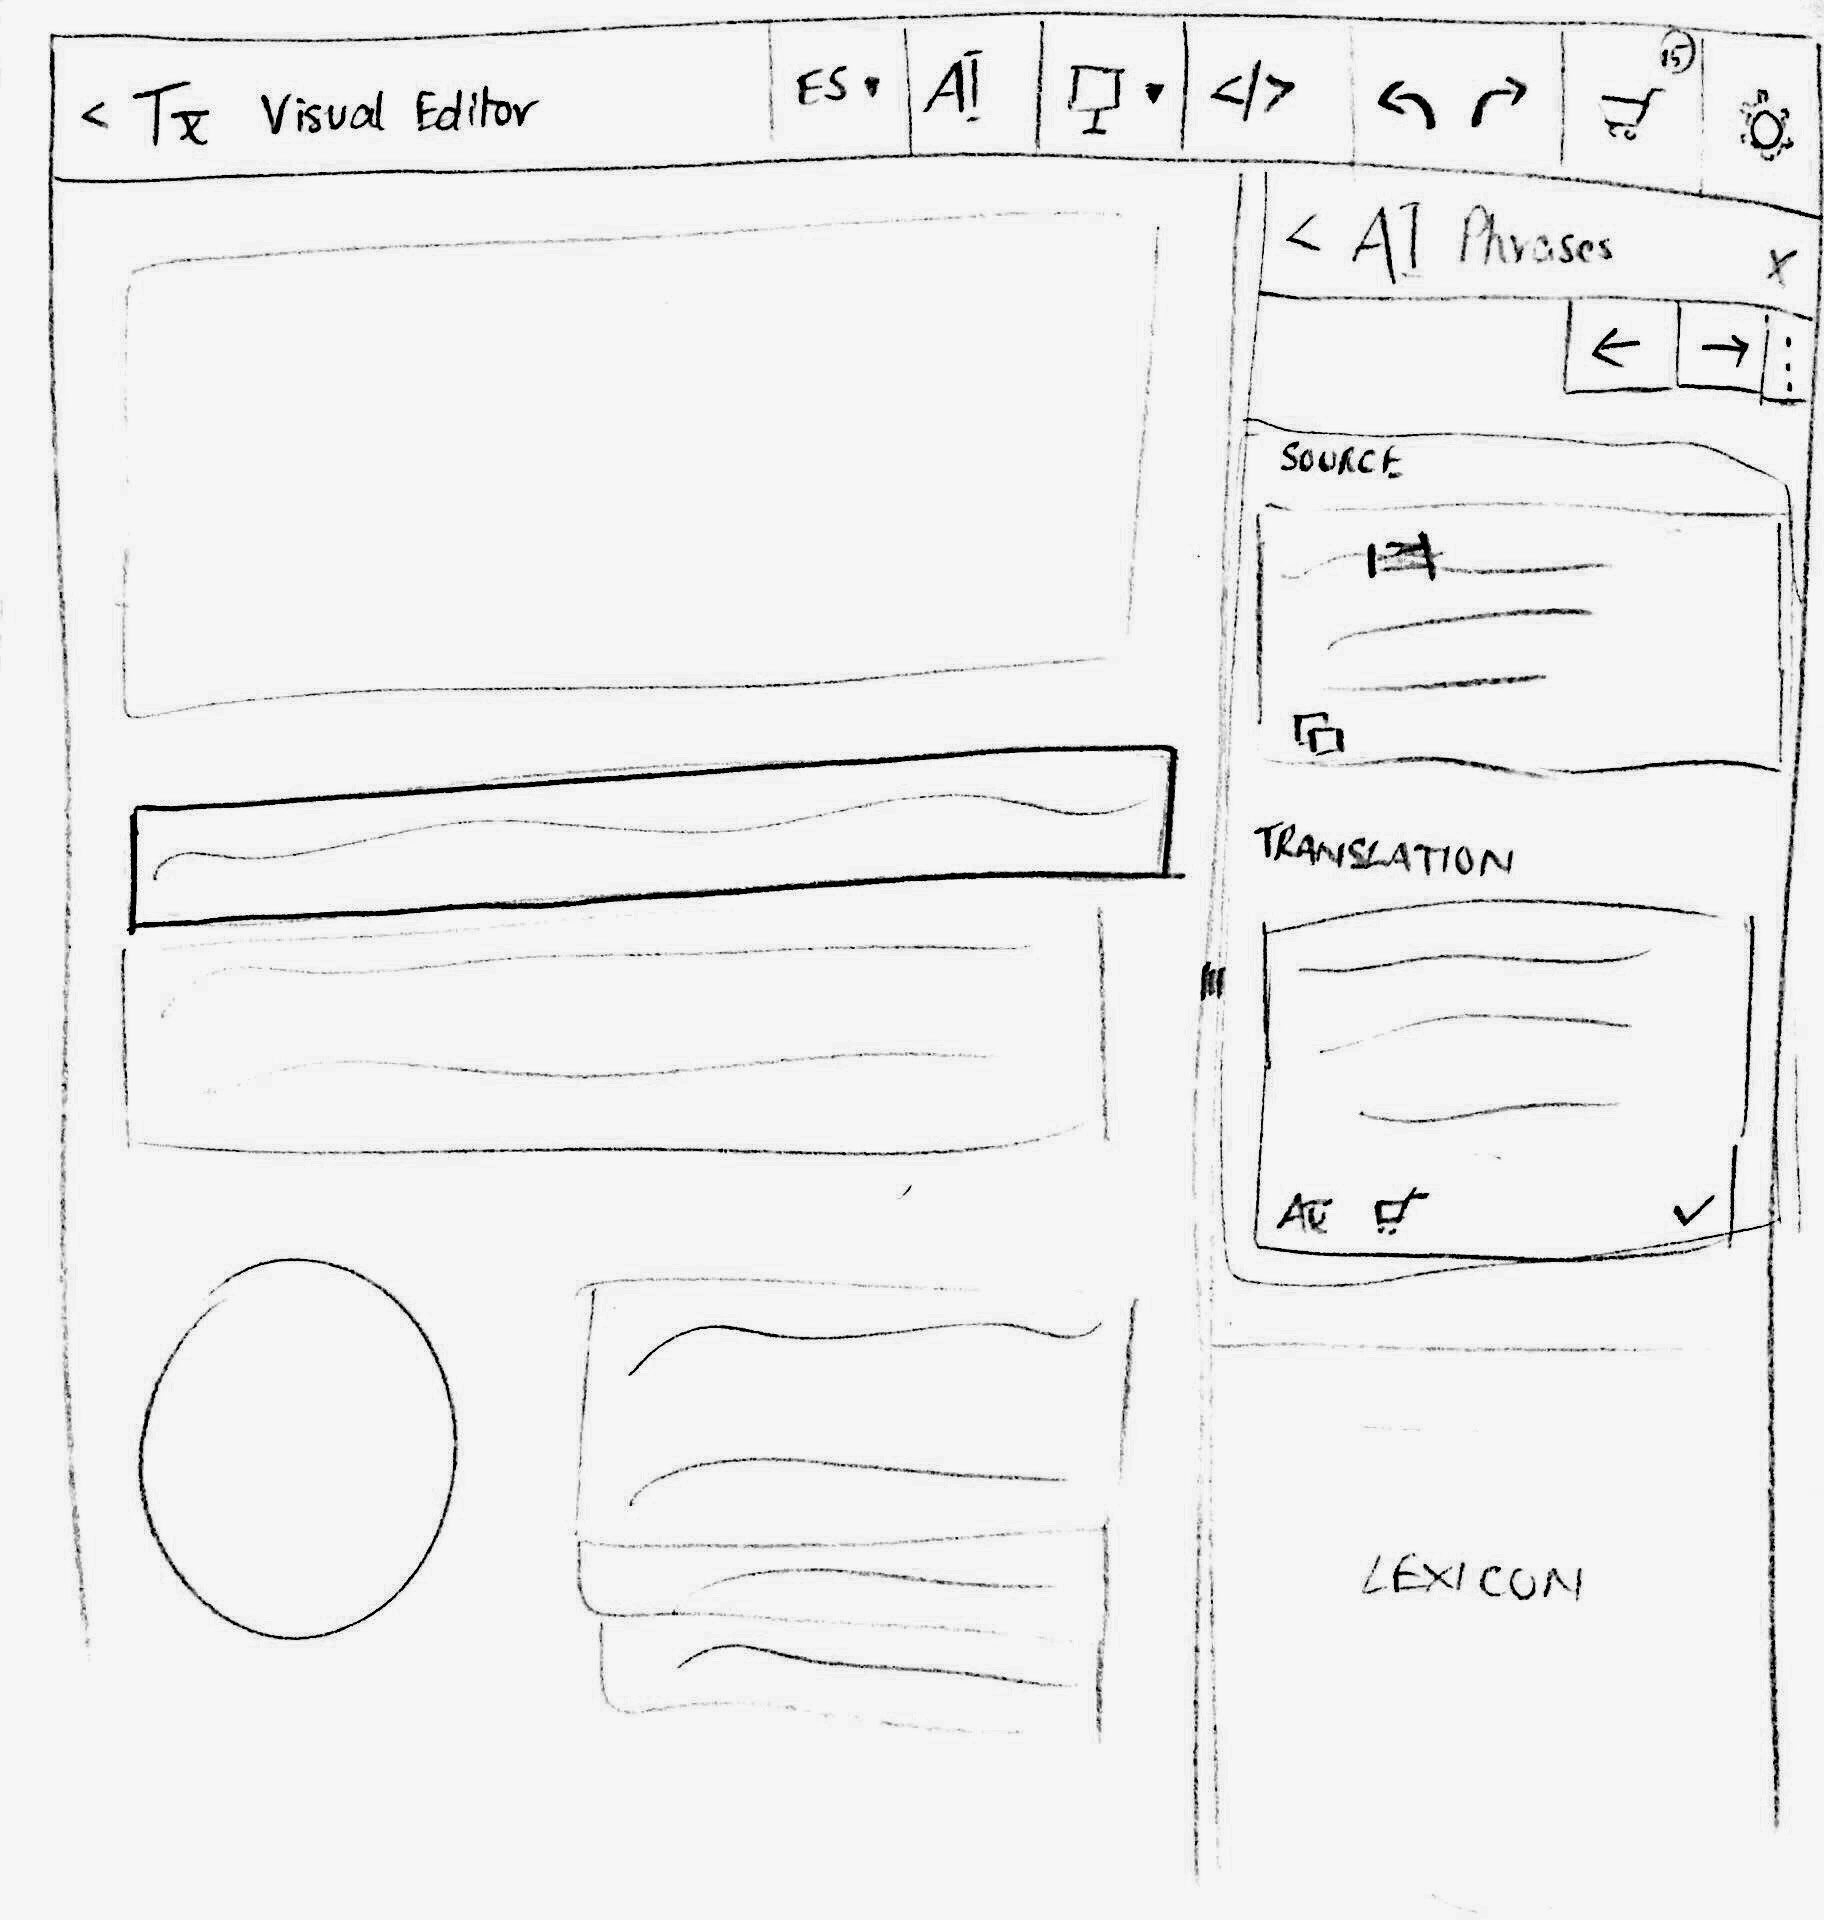 < Tx Visual Editor ES ▾ AI ▾ </> 15
< AI Phrases x
SOURCE
TRANSLATION
LEXICON